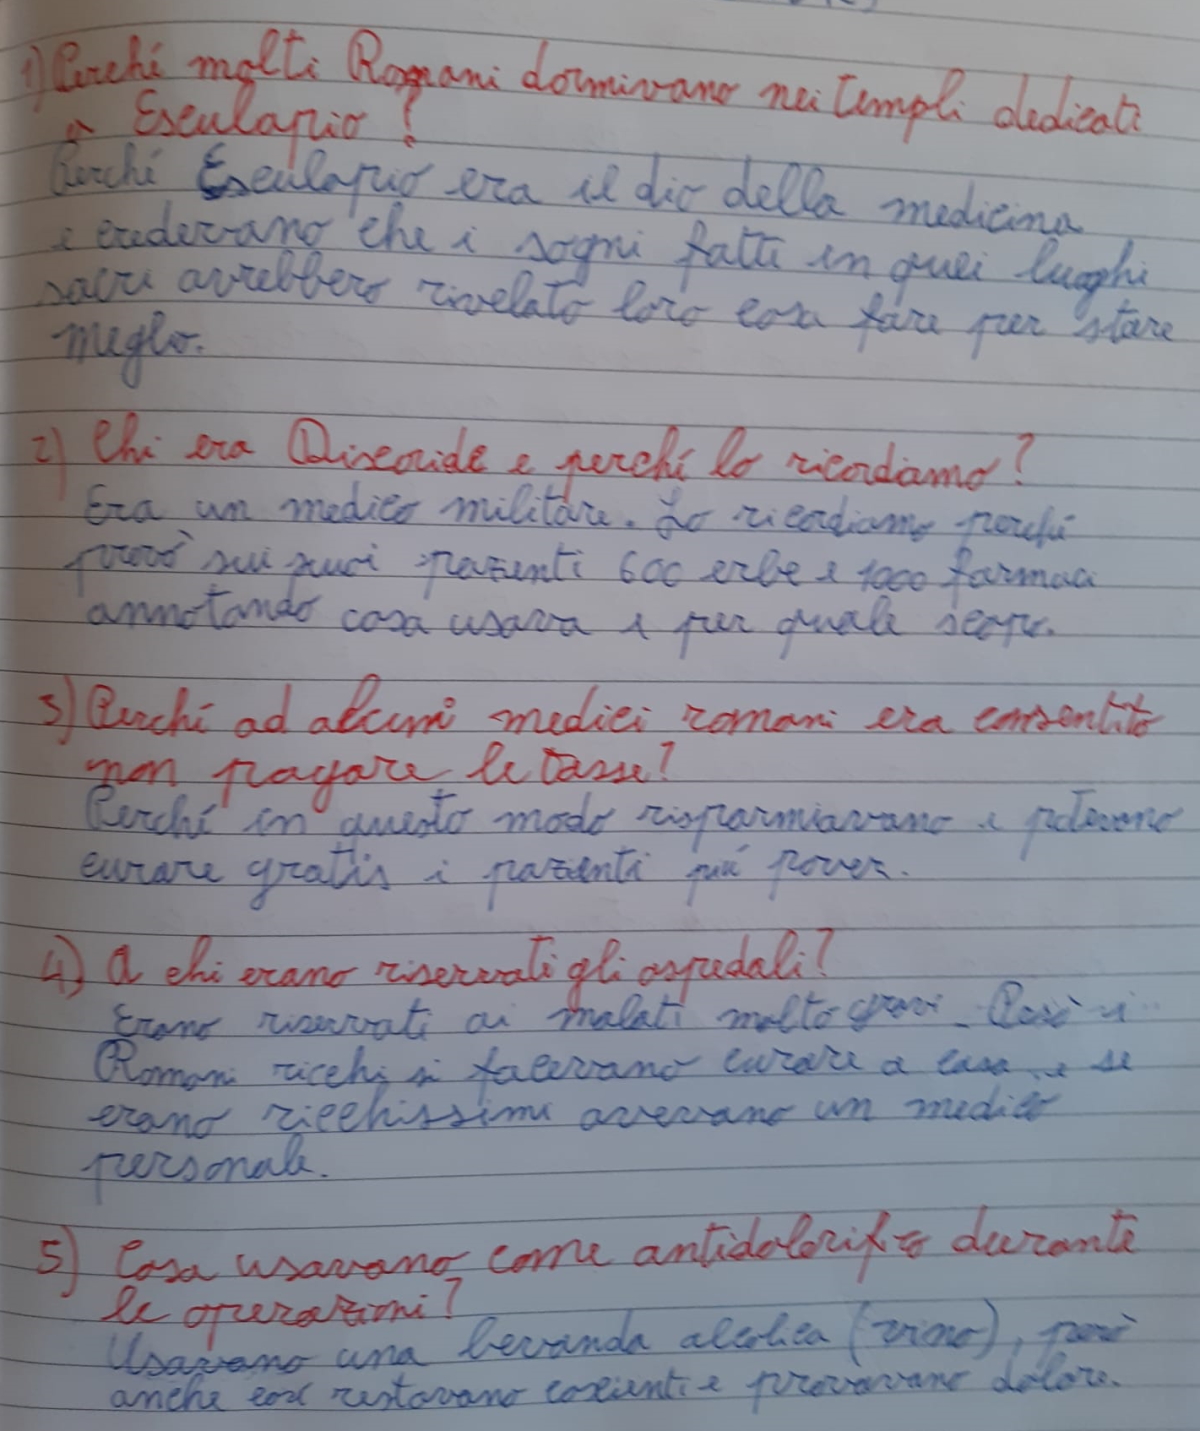 1) Perché molti Romani dormivano nei templi dedicati
a Esculapio?
Perché Esculapio era il dio della medicina
e credevano che i sogni fatti in quei luoghi
sacri avrebbero rivelato loro cosa fare per stare
meglo.
2) Chi era Discoride e perché lo ricordiamo?
Era un medico militare. Lo ricordiamo perché
provò sui suoi pazienti 600 erbe e 1000 farmaci
annotando cosa usava e per quale scopo.
3) Perché ad alcuni medici romani era consentito
non pagare le tasse?
Perché in questo modo risparmiavano e potevano
curare gratis i pazienti più poveri.
4) A chi erano riservati gli ospedali?
Erano riservati ai malati molto gravi. Però i
Romani ricchi si facevano curare a casa e se
erano ricchissimi avevano un medico
personale.
5) Cosa usavano come antidolorifico durante
le operazioni?
Usavano una bevanda alcolica (vino), però
anche così restavano coscienti e provavano dolore.